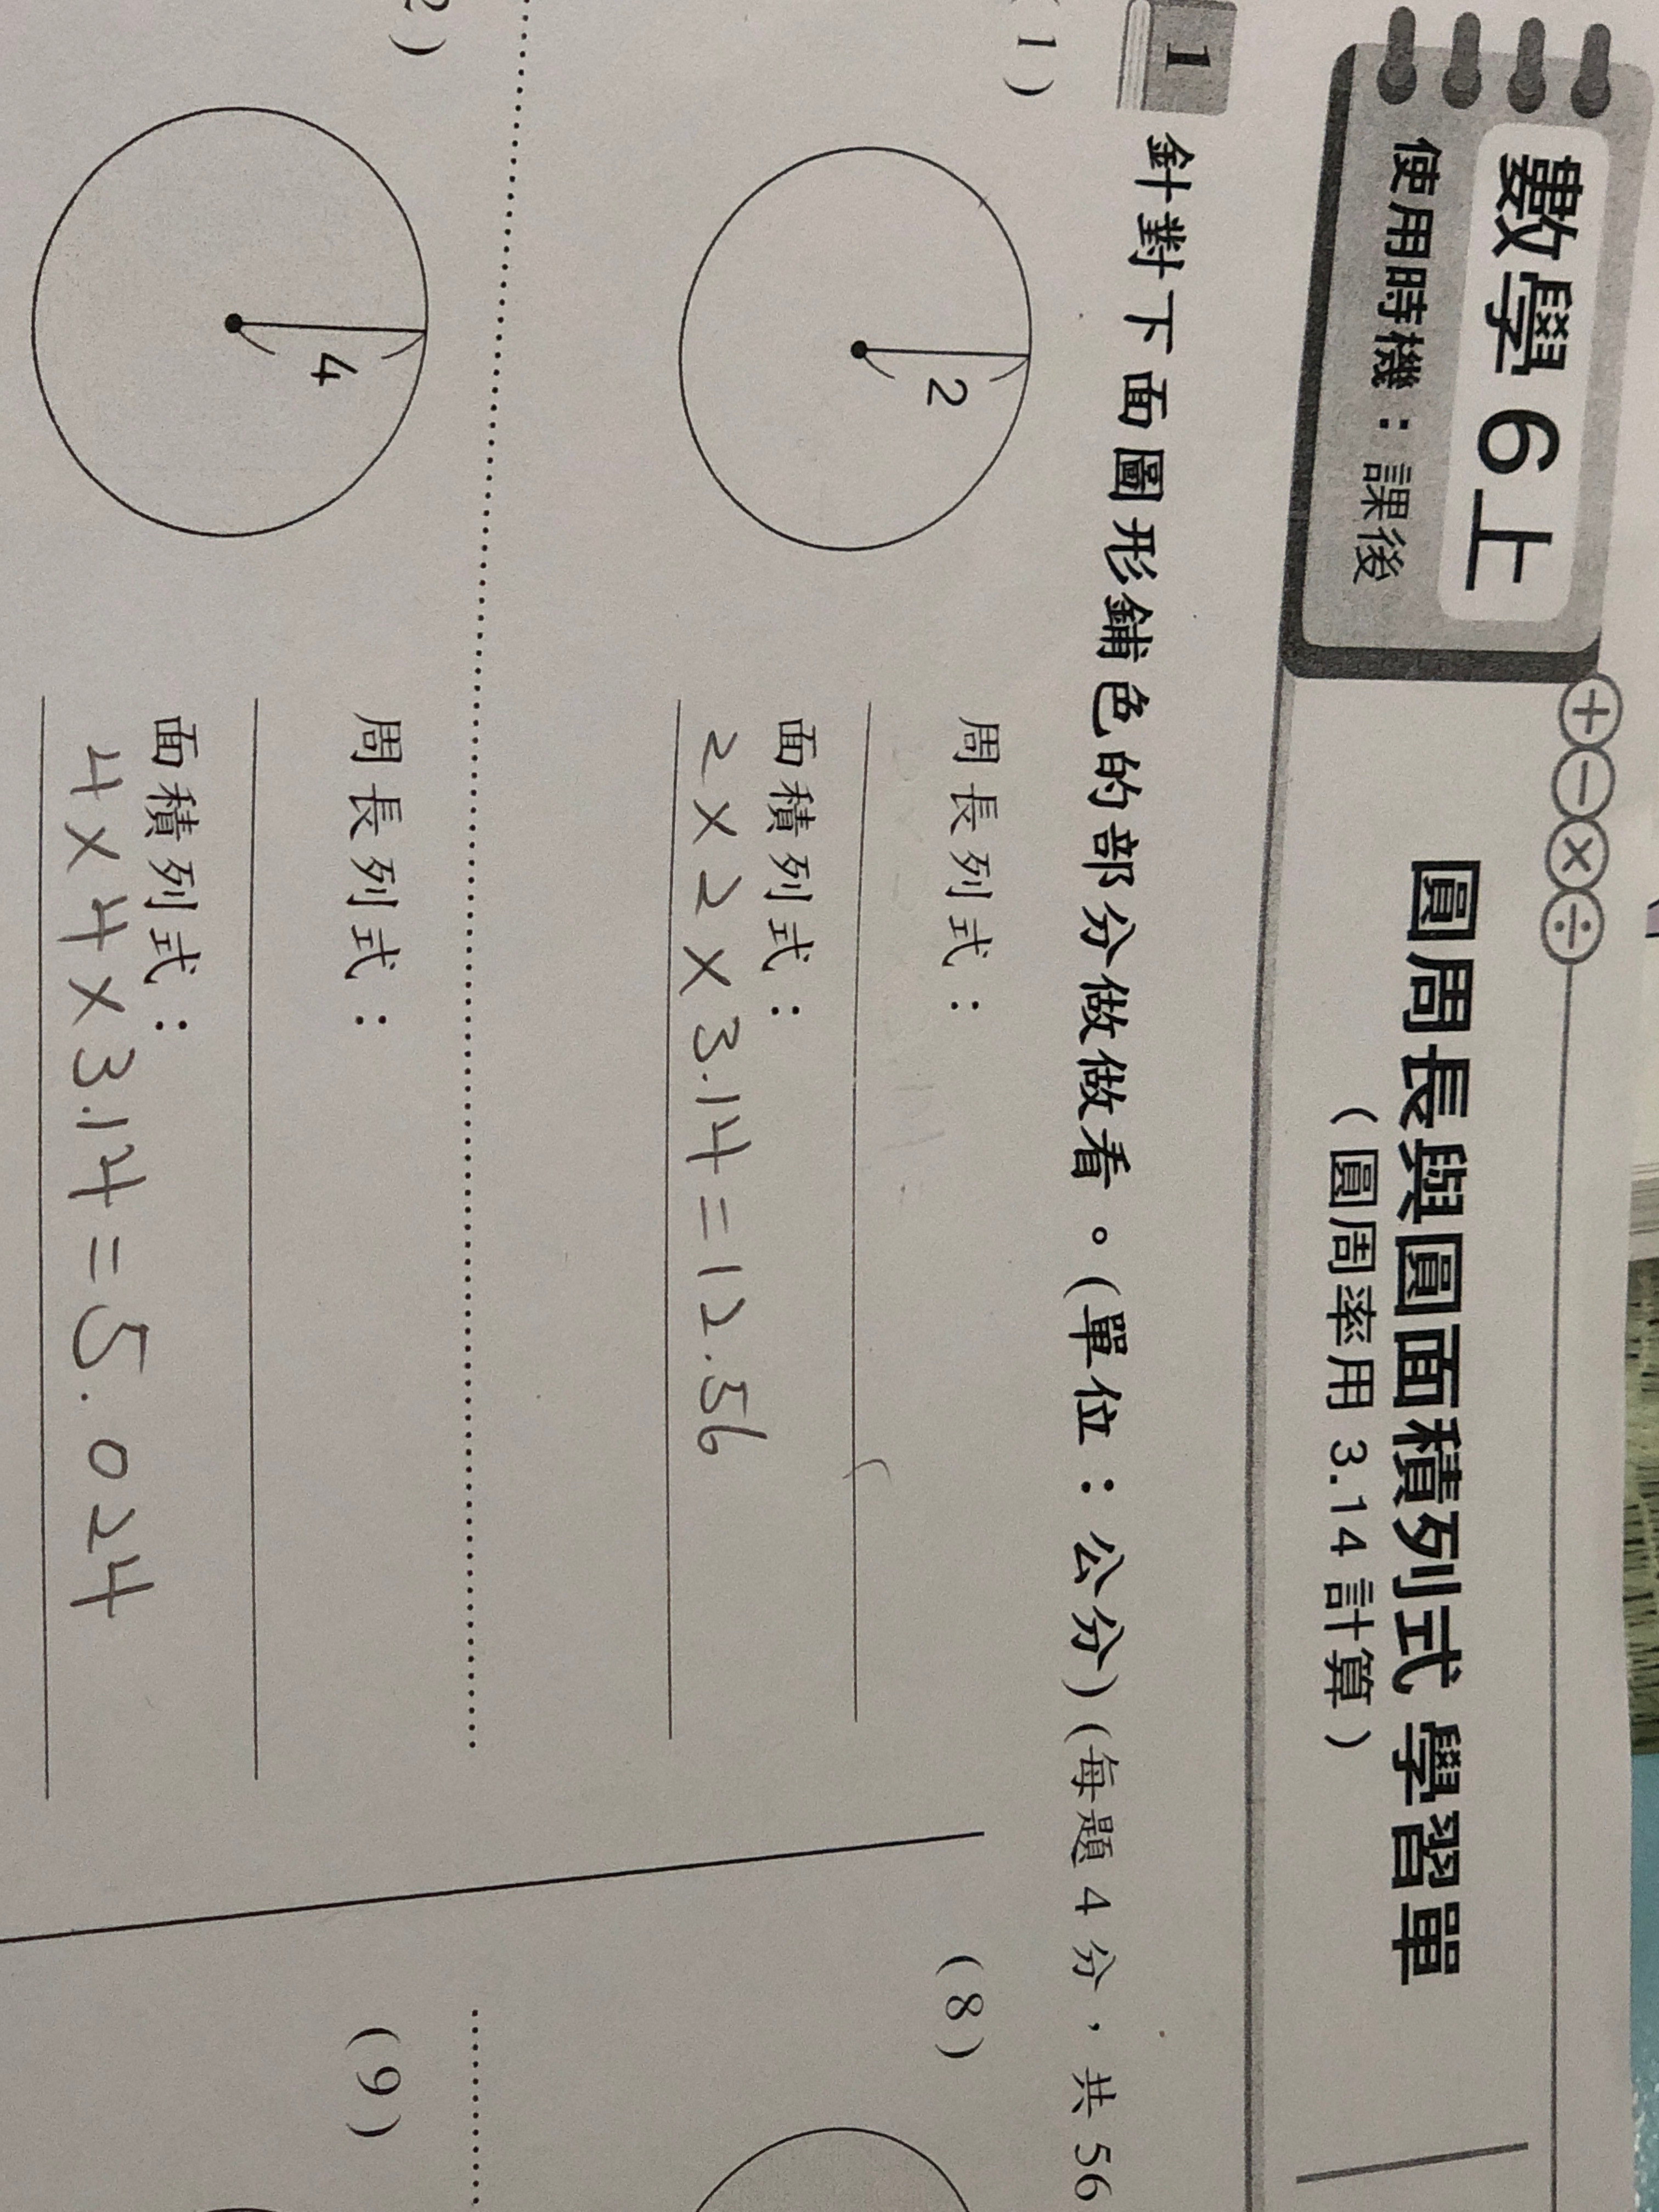 數學6上
使用時機：課後
圓周長與圓面積列式 學習單
（圓周率用 3.14 計算）
1 針對下面圖形鋪色的部分做做看。(單位：公分)(每題 4 分，共 56
(1)
2
周長列式：
面積列式：
2×2×3.14=12.56
2)
4
周長列式：
面積列式：
4×4×3.14=5.024
(8)
(9)